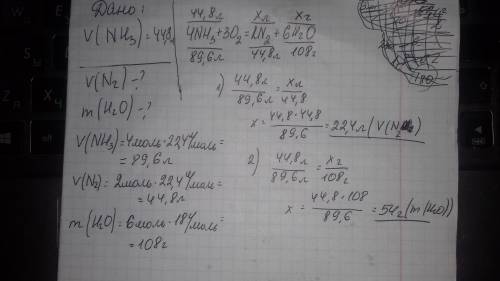 Дано:
V(NH3)=44,8л
V(N2)-?
m(H2O)-?
V(NH3)=4моль·22,4л/моль=
=89,6л
V(N2)=2моль·22,4л/моль=
=44,8л
m(H2O)=6моль·18г/моль=
=108г
44,8л xл xг
4NH3+3O2=2N2+6H2O
89,6л 44,8л 108г
1) 44,8л/89,6л=xл/44,8
x=44,8·44,8/89,6=22,4л(V(N2))
2) 44,8л/89,6л=xг/108г
x=44,8·108/89,6=54г(m(H2O))